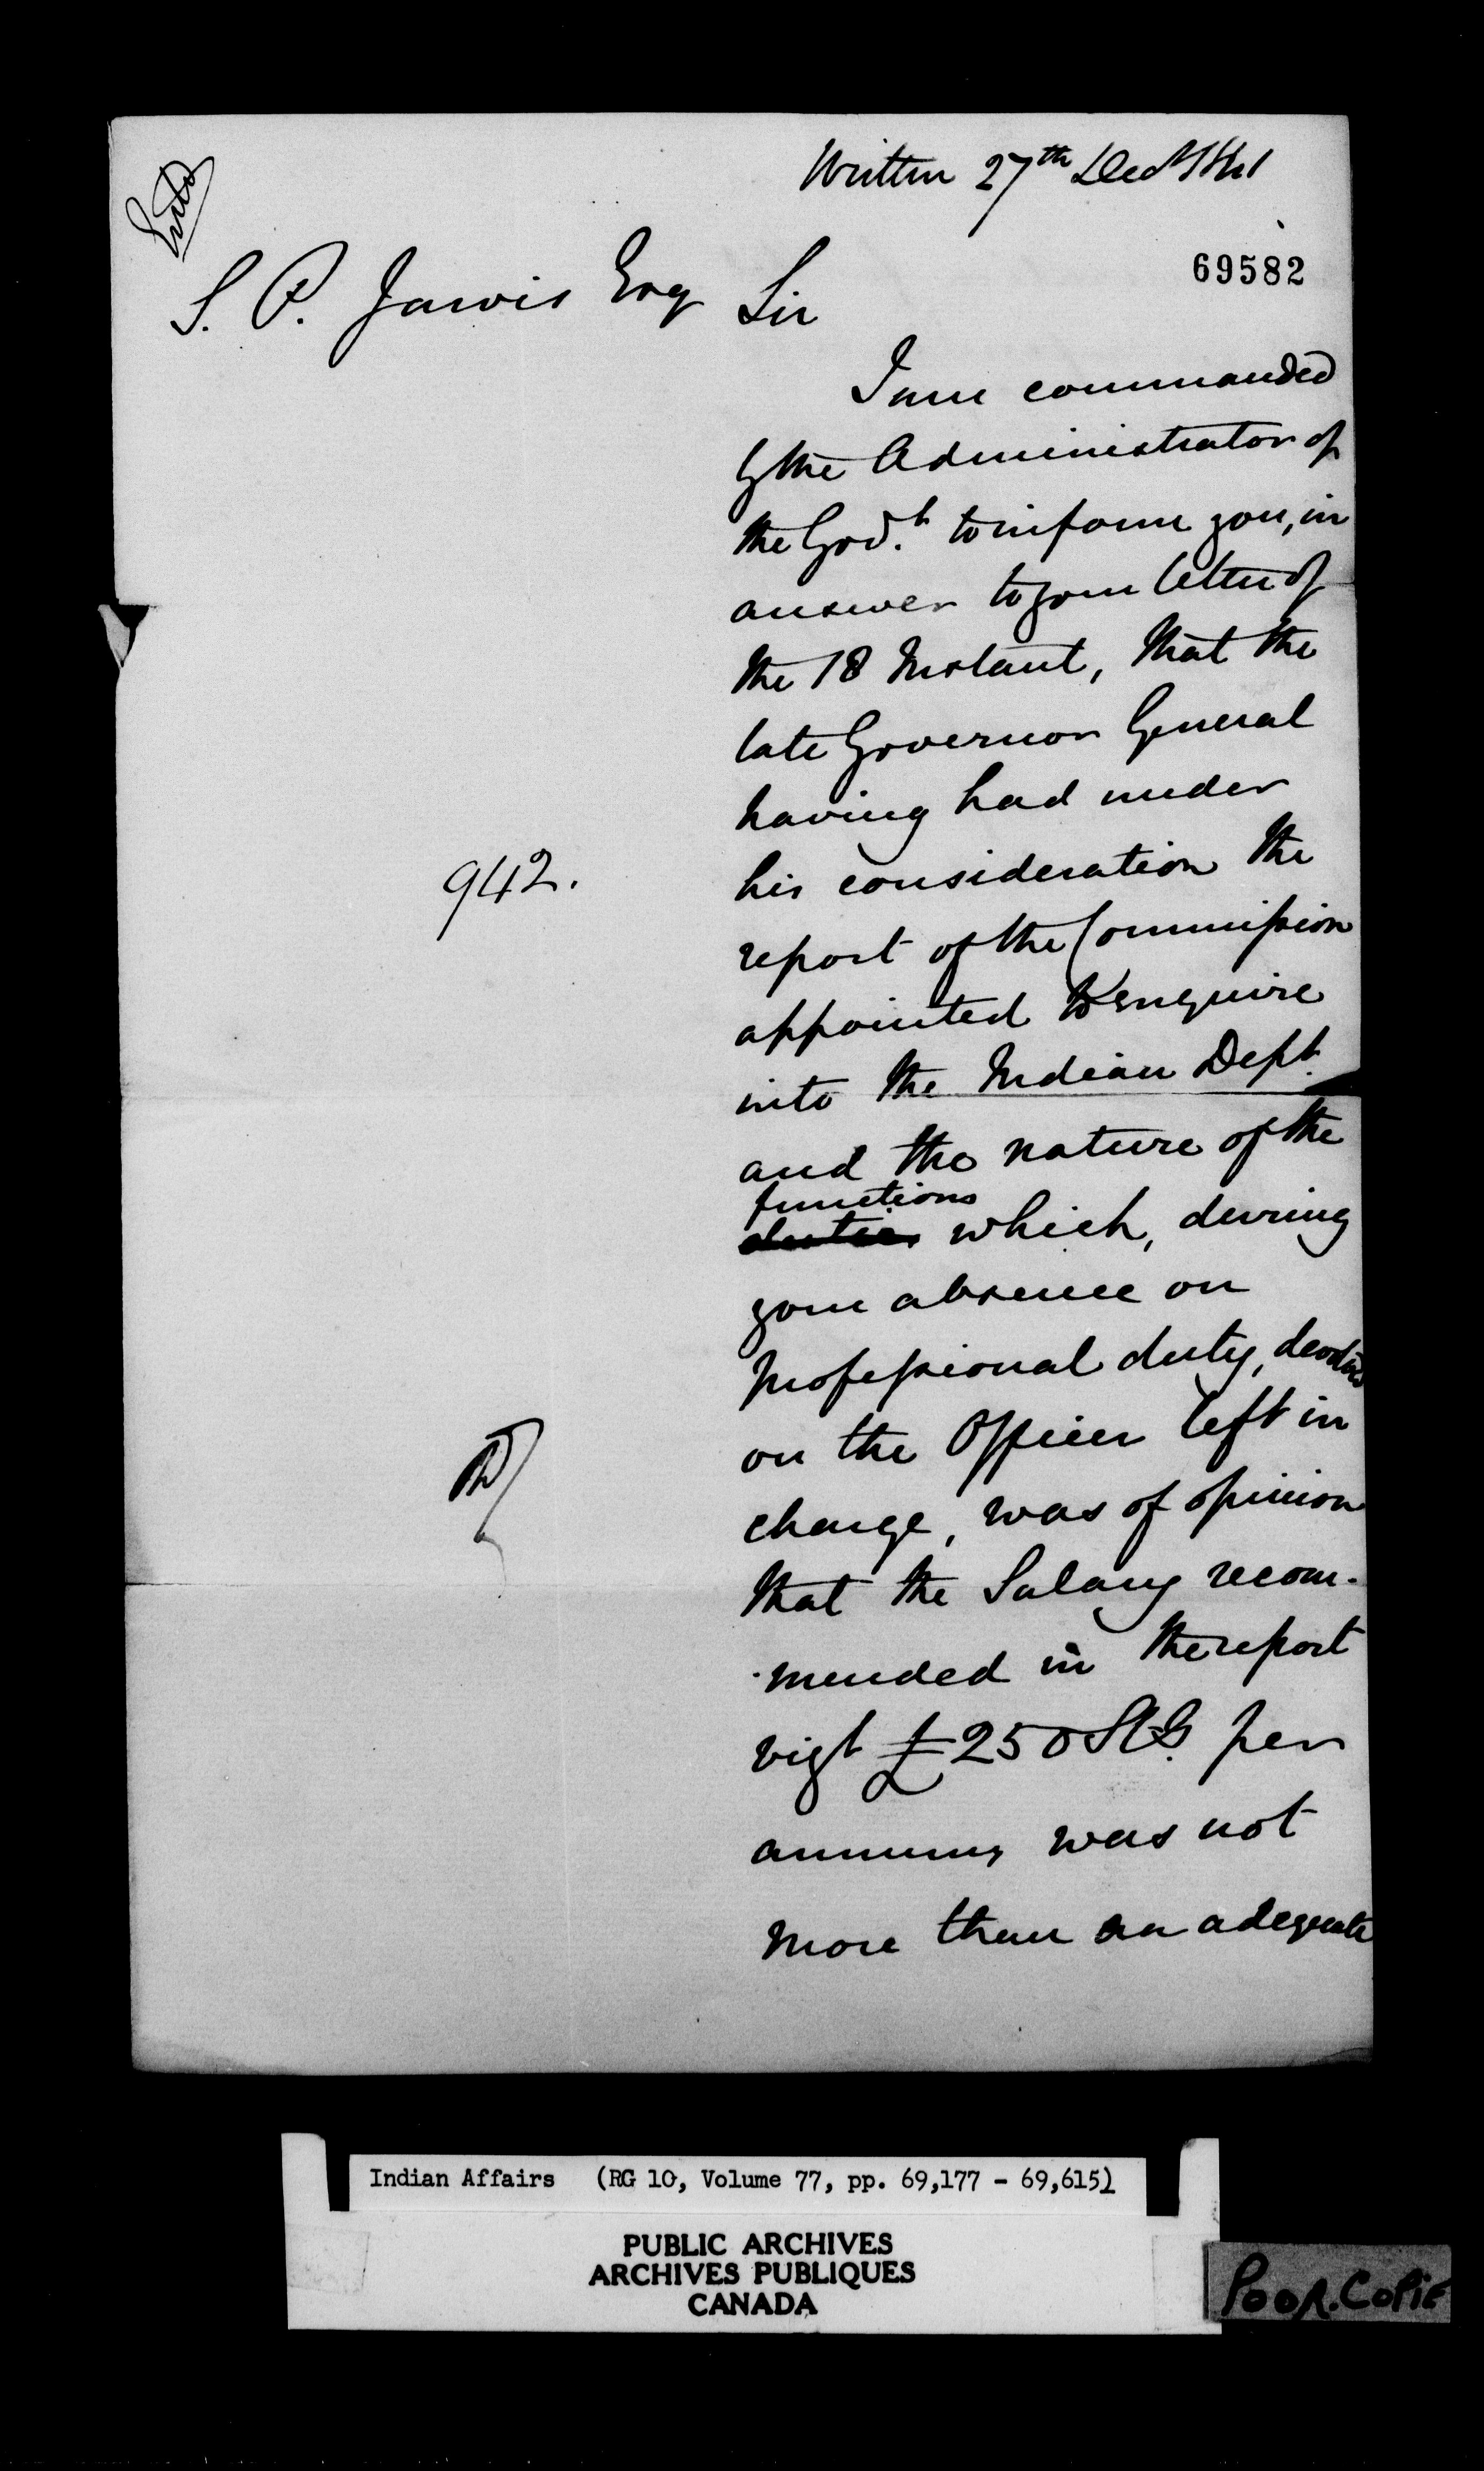 Written 27th Decr 1841
Entd
69582
S. P. Jarvis Esq Sir
I am commanded
by the Administrator of
the Govt. to inform you, in
answer to your letter of
the 18 Instant, that the
late Governor General
having had under
942.
his consideration the
report of the Commission
appointed to enquire
into the Indian Dept.
and the nature of the
functions
duties which, during
your absence on
professional duty, devolves
on the Officer left in
charge, was of opinion
that the Salary recom-
-mended in the report
vizt £250 Stg. per
annum, was not
more than an adequate
Indian Affairs (RG 10, Volume 77, pp. 69,177 - 69,615)
PUBLIC ARCHIVES
ARCHIVES PUBLIQUES
CANADA
POOR.COPIE